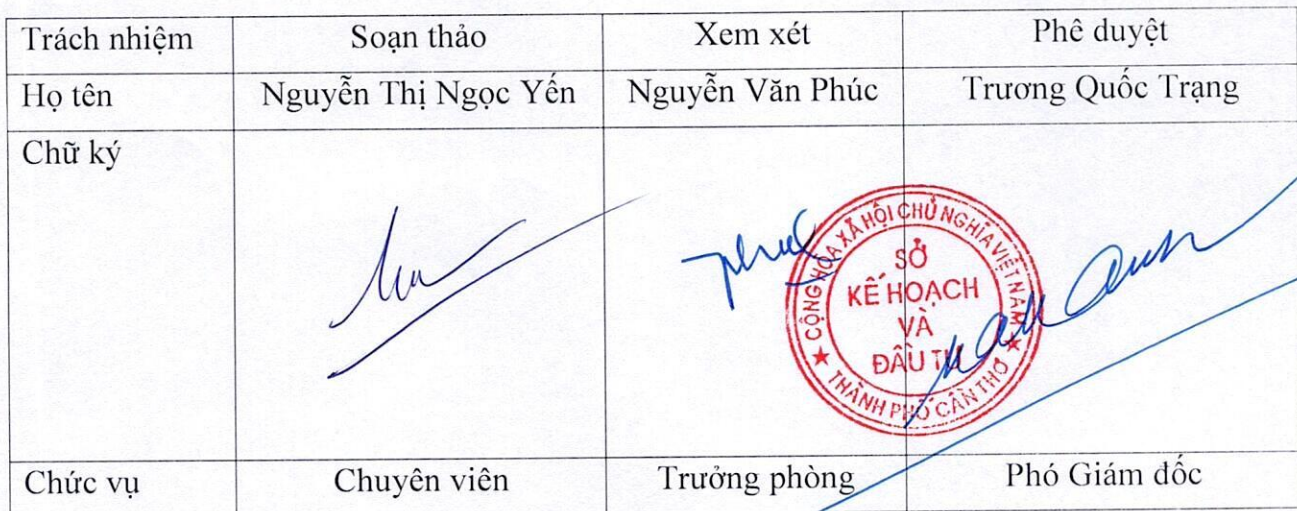 Trách nhiệm Soạn thảo Xem xét Phê duyệt
Họ tên Nguyễn Thị Ngọc Yến Nguyễn Văn Phúc Trương Quốc Trạng
Chữ ký
CỘNG HÒA XÃ HỘI CHỦ NGHĨA VIỆT NAM
SỞ
KẾ HOẠCH
VÀ
ĐẦU TƯ
THÀNH PHỐ CẦN THƠ
Chức vụ Chuyên viên Trưởng phòng Phó Giám đốc